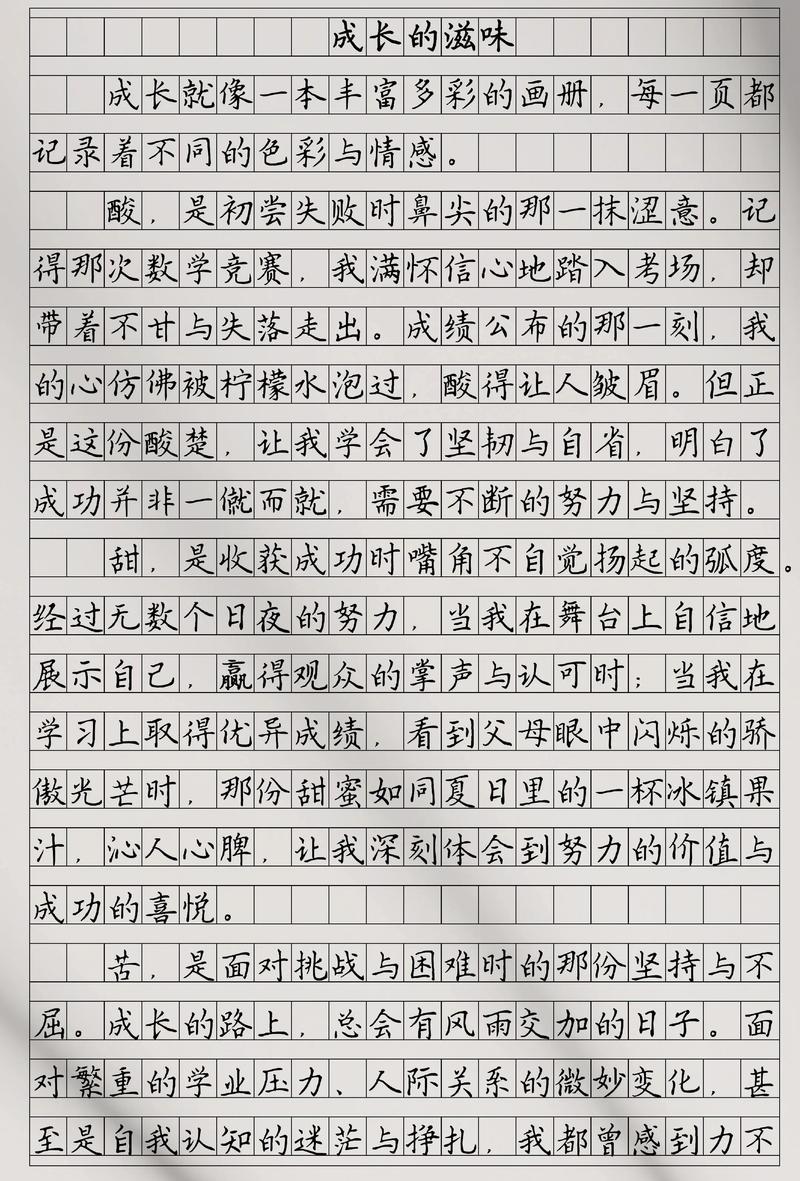 成长的滋味
成长就像一本丰富多彩的画册，每一页都
记录着不同的色彩与情感。
酸，是初尝失败时鼻尖的那一抹涩意。记
得那次数学竞赛，我满怀信心地踏入考场，却
带着不甘与失落走出。成绩公布的那一刻，我
的心仿佛被柠檬水泡过，酸得让人皱眉。但正
是这份酸楚，让我学会了坚韧与自省，明白了
成功并非一僦而就，需要不断的努力与坚持。
甜，是收获成功时嘴角不自觉扬起的弧度。
经过无数个日夜的努力，当我在舞台上自信地
展示自己，赢得观众的掌声与认可时；当我在
学习上取得优异成绩，看到父母眼中闪烁的骄
傲光芒时，那份甜蜜如同夏日里的一杯冰镇果
汁，沁人心脾，让我深刻体会到努力的价值与
成功的喜悦。
苦，是面对挑战与困难时的那份坚持与不
屈。成长的路上，总会有风雨交加的日子。面
对繁重的学业压力、人际关系的微妙变化，甚
至是自我认知的迷茫与挣扎，我都曾感到力不